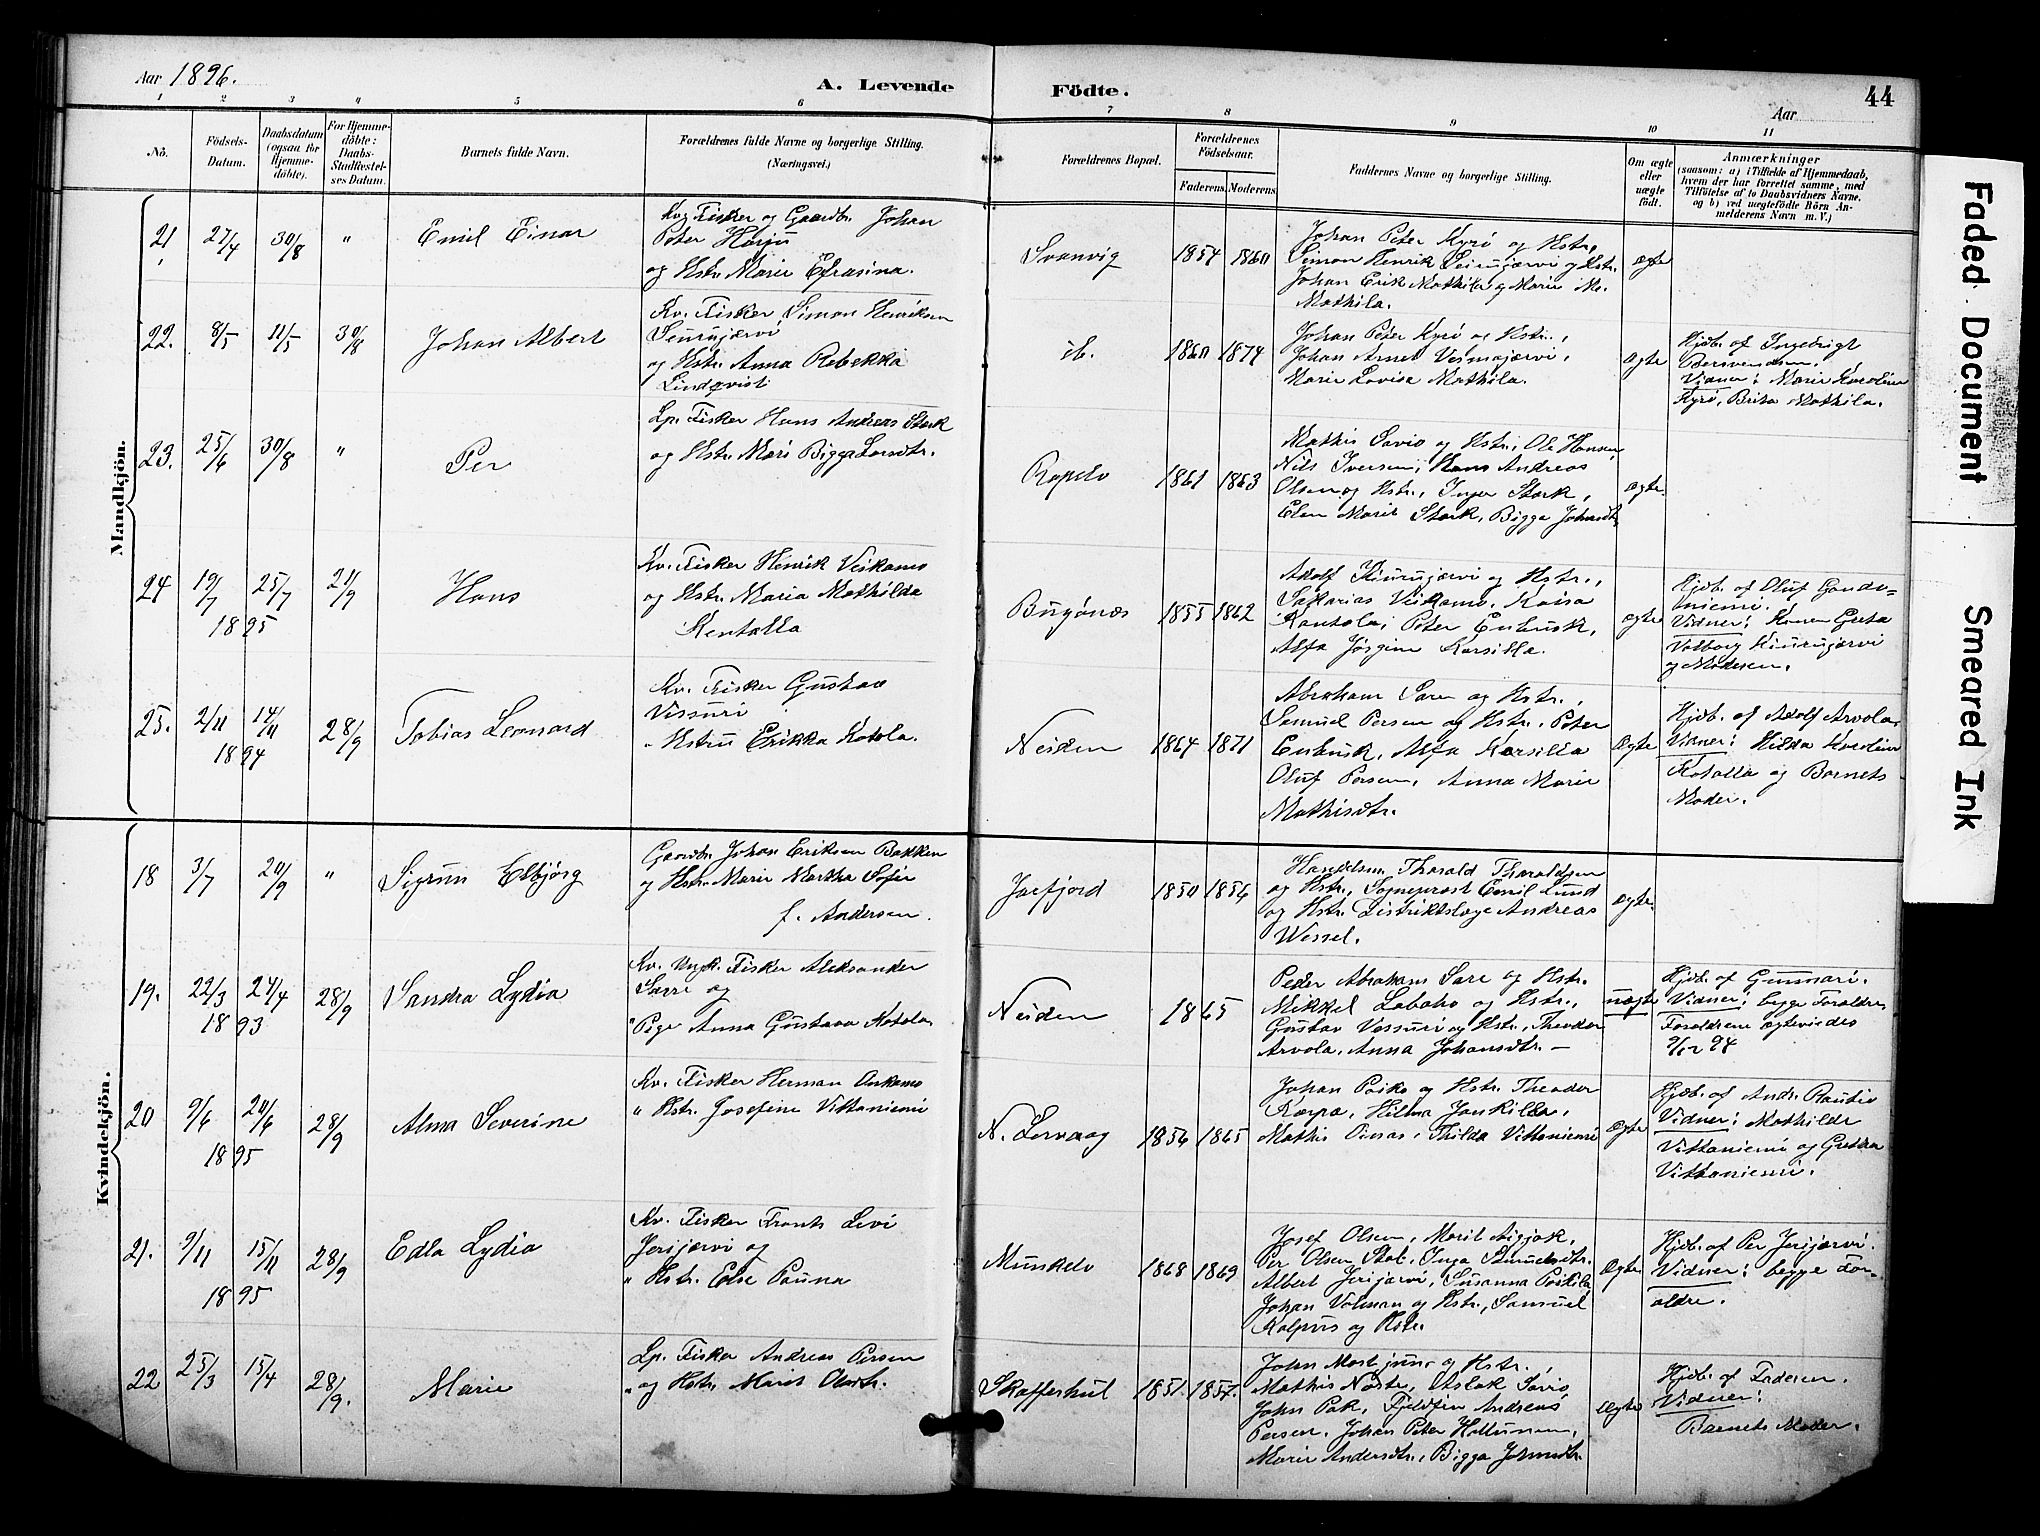 Aar 1896.
A. Levende Födte.
Aar
44
1 2 3 4 5 6 7 8 9 10 11
No.
Födsels-Datum.
Daabsdatum (ogsaa for Hjemme-döbte).
For Hjemme-döbte: Daabs-Stadfæstel-ses Datum.
Barnets fulde Navn.
Forældrenes fulde Navne og borgerlige Stilling.
(Næringsvei.)
Forældrenes Bopæl.
Forældrenes Födselsaar.
Faderens. Moderens.
Faddernes Navne og borgerlige Stilling.
Om ægte eller uægte født.
Anmærkninger
(saasom: a) i Tilfælde af Hjemmedaab,
hvem der har forrettet samme, med
Tilföielse af to Daabsvidners Navne.
og b) ved uægtefödte Börn An-
melderens Navn m. V.)
Mandkjön.
21, 27/4 30/8 " Emil Einar
Kv. Fisker og Gaardbr. Johan
Peter Harju
og Hstr. Marie Efrasina.
Svanvig 1854 1860
Johan Peter Kyrö og Hstr.,
Simon Henrik Seirujærvi og Hstr.
Johan Erik Mathila og Marie M.
Mathila.
ægte
22. 8/5 11/5 30/8 Johan Albert
Kv. Fisker Simon Henriksen
Seurujærvi
og Hstr. Anna Rebekka
Lindqvist
ib. 1860 1874
Johan Peter Kyrö og Hstr.,
Johan Arnet Vesmajærvi,
Marie Lovisa Mathila.
ægte
Hjdb. af Ingebrigt
Bersvendsen.
Vidner: Marie Karoline
Kyrö, Brita Mathila.
23. 25/6 30/8 " Per
Lp. Fisker Hans Andreas Stark
og Hstr. Mari Bigga Larsdtr.
Ropelv 1861 1863
Mathis Savio og Hstr., Ole Hansen,
Nils Iversen, Hans Andreas
Olsen og Hstr., Inger Stark,
Elen Marit Stark, Bigga Johnsdtr.
ægte.
24 19/7 25/7 21/9 Hans
1895
Kv. Fisker Henrik Veikamo
og Hstr. Maria Mathilda
Kentalla
Bugönæs 1855 1862
Adolf Kiurujærvi og Hstr.,
Sakarias Veikamo, Kaisa
Kantola, Peter Enbusk,
Alfa Jörgine Karsilla.
ægte
Hjdb. af Oluf Ganda-
niemi.
Vidner: Konen Greta
Valborg Kiurujærvi
og Moderen.
25. 2/11 14/11 28/9 Tobias Leonard
1894
Kv. Fisker Gustav
Vissuri
" Hstru Erikka Katola.
Neiden 1864 1871
Abraham Sare og Hstr.,
Samuel Persen og Hstr., Peter
Enbusk, Alfa Karsilla
Oluf Persen, Anna Marie
Mathisdtr.
Ægte
Hjdb. af Adolf Arvola
Vidner: Hilda Karoline
Katalla og Barnets
Moder.
Kvindekjön.
18 3/7 20/9 " Sigrun Elbjörg
Gaardbr. Johan Eriksen Bakken
og Hstr. Marie Martha Sofie
f. Andersen.
Jarfjord 1850 1856
Handelsm. Tharald Tharaldsen
og Hstr., Sogneprest Emil Lund
og Hstr. Distriktslæge Andreas
Wessel.
ægte
19. 22/3 24/4 28/9 Sandra Lydia
1893
Kv. Ungk. Fisker Aleksander
Sarre og
" Pige Anna Gustava Katola
Neiden 1865
Peder Abrahams Sare og Hstr.
Mikkel Labaho og Hstr.,
Gustav Vessuri og Hstr., Theodor
Arvola, Anna Johansdtr. —
uægte
Hjdb. af Gunnari.
Vidner: begge Forældre.
Forældrene ægteviedes
9/12 94
20 9/6 20/6 28/9 Alma Severine
1895
Kv. Fisker Herman Onkamo
" Hstr. Josefine Vittaniemi
N. Lervaag 1856 1865
Johan Poiko og Hstr. Theodor
Karpa, Hilma Jankilla,
Mathis Oinas, Thilda Vittaniemi
Ægte
Hjdb. af Andr. Rautio
Vidner: Mathilde
Vittaniemi og Gretha
Vittaniemi.
21. 9/11 15/11 28/9 Edla Lydia
1895
Kv. Fisker Frants Levi
Jerijærvi og
" Hstr. Else Pauna
Munkelv 1868 1869
Josef Olsen, Marit Aigjok,
Per Olsen Stab, Inga Samuelsdtr.
Albert Jerijærvi, Susanna Poikila
Johan Volman og Hstr., Samuel
Kalpus og Hstr.
Ægte
Hjdb. af Per Jerijærvi.
Vidner: begge For-
ældre.
22 25/3 15/4 28/9. Marie
Lp. Fisker Andreas Persen
" og Hstr. Marit Olsdtr.
Skafferhul 1851. 1857.
John Mortjune og Hstr.,
Mathis Hostr, Aslak Savio,
John Pak, Fjeldfin Andreas
Persen, Johan Peter Hallunen,
Marie Andersdtr., Bigga Johnsdtr.
Ægte
Hjdb. af Faderen.
Vidner:
Barnets Moder.
Faded Document
Smeared Ink